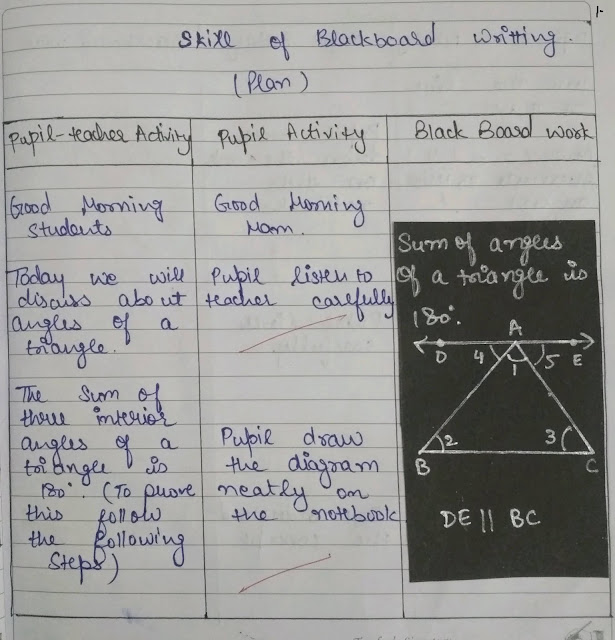 1-
Skill of Blackboard Writting.
(Plan)
Pupil-teacher Activity
Good Morning
Students
Today we will
discuss about
angles of a
triangle.
The Sum of
three interior
angles of a
triangle is
180°. (To prove
this follow
the following
Steps)
Pupil Activity
Good Morning
Mam.
Pupil listen to
teacher carefully
Pupil draw
the diagram
neatly on
the notebook
Black Board Work
Sum of angles
of a triangle is
180°.
A
D 4 1 5 E
2 3
B C
DE || BC